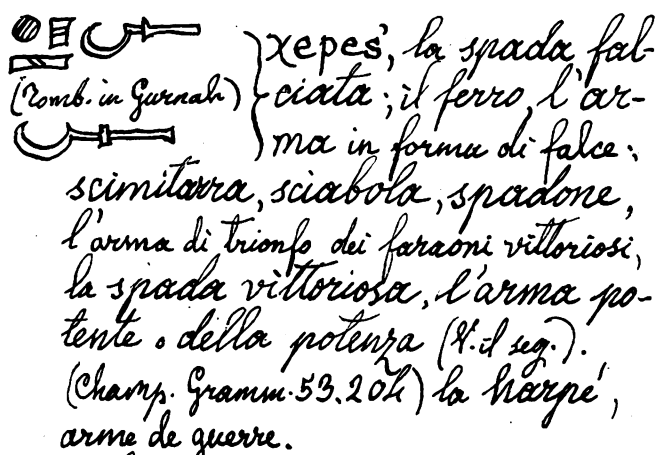 χepeś, la spada fal-
(Tomb. in Gurnah) ciata; il ferro, l'ar-
ma in forma di falce:
scimitarra, sciabola, spadone,
l'arma di trionfo dei faraoni vittoriosi,
la spada vittoriosa, l'arma po-
tente o della potenza (V. il seg.).
(Champ. Gramm. 53. 204) la harpé,
arme de guerre.